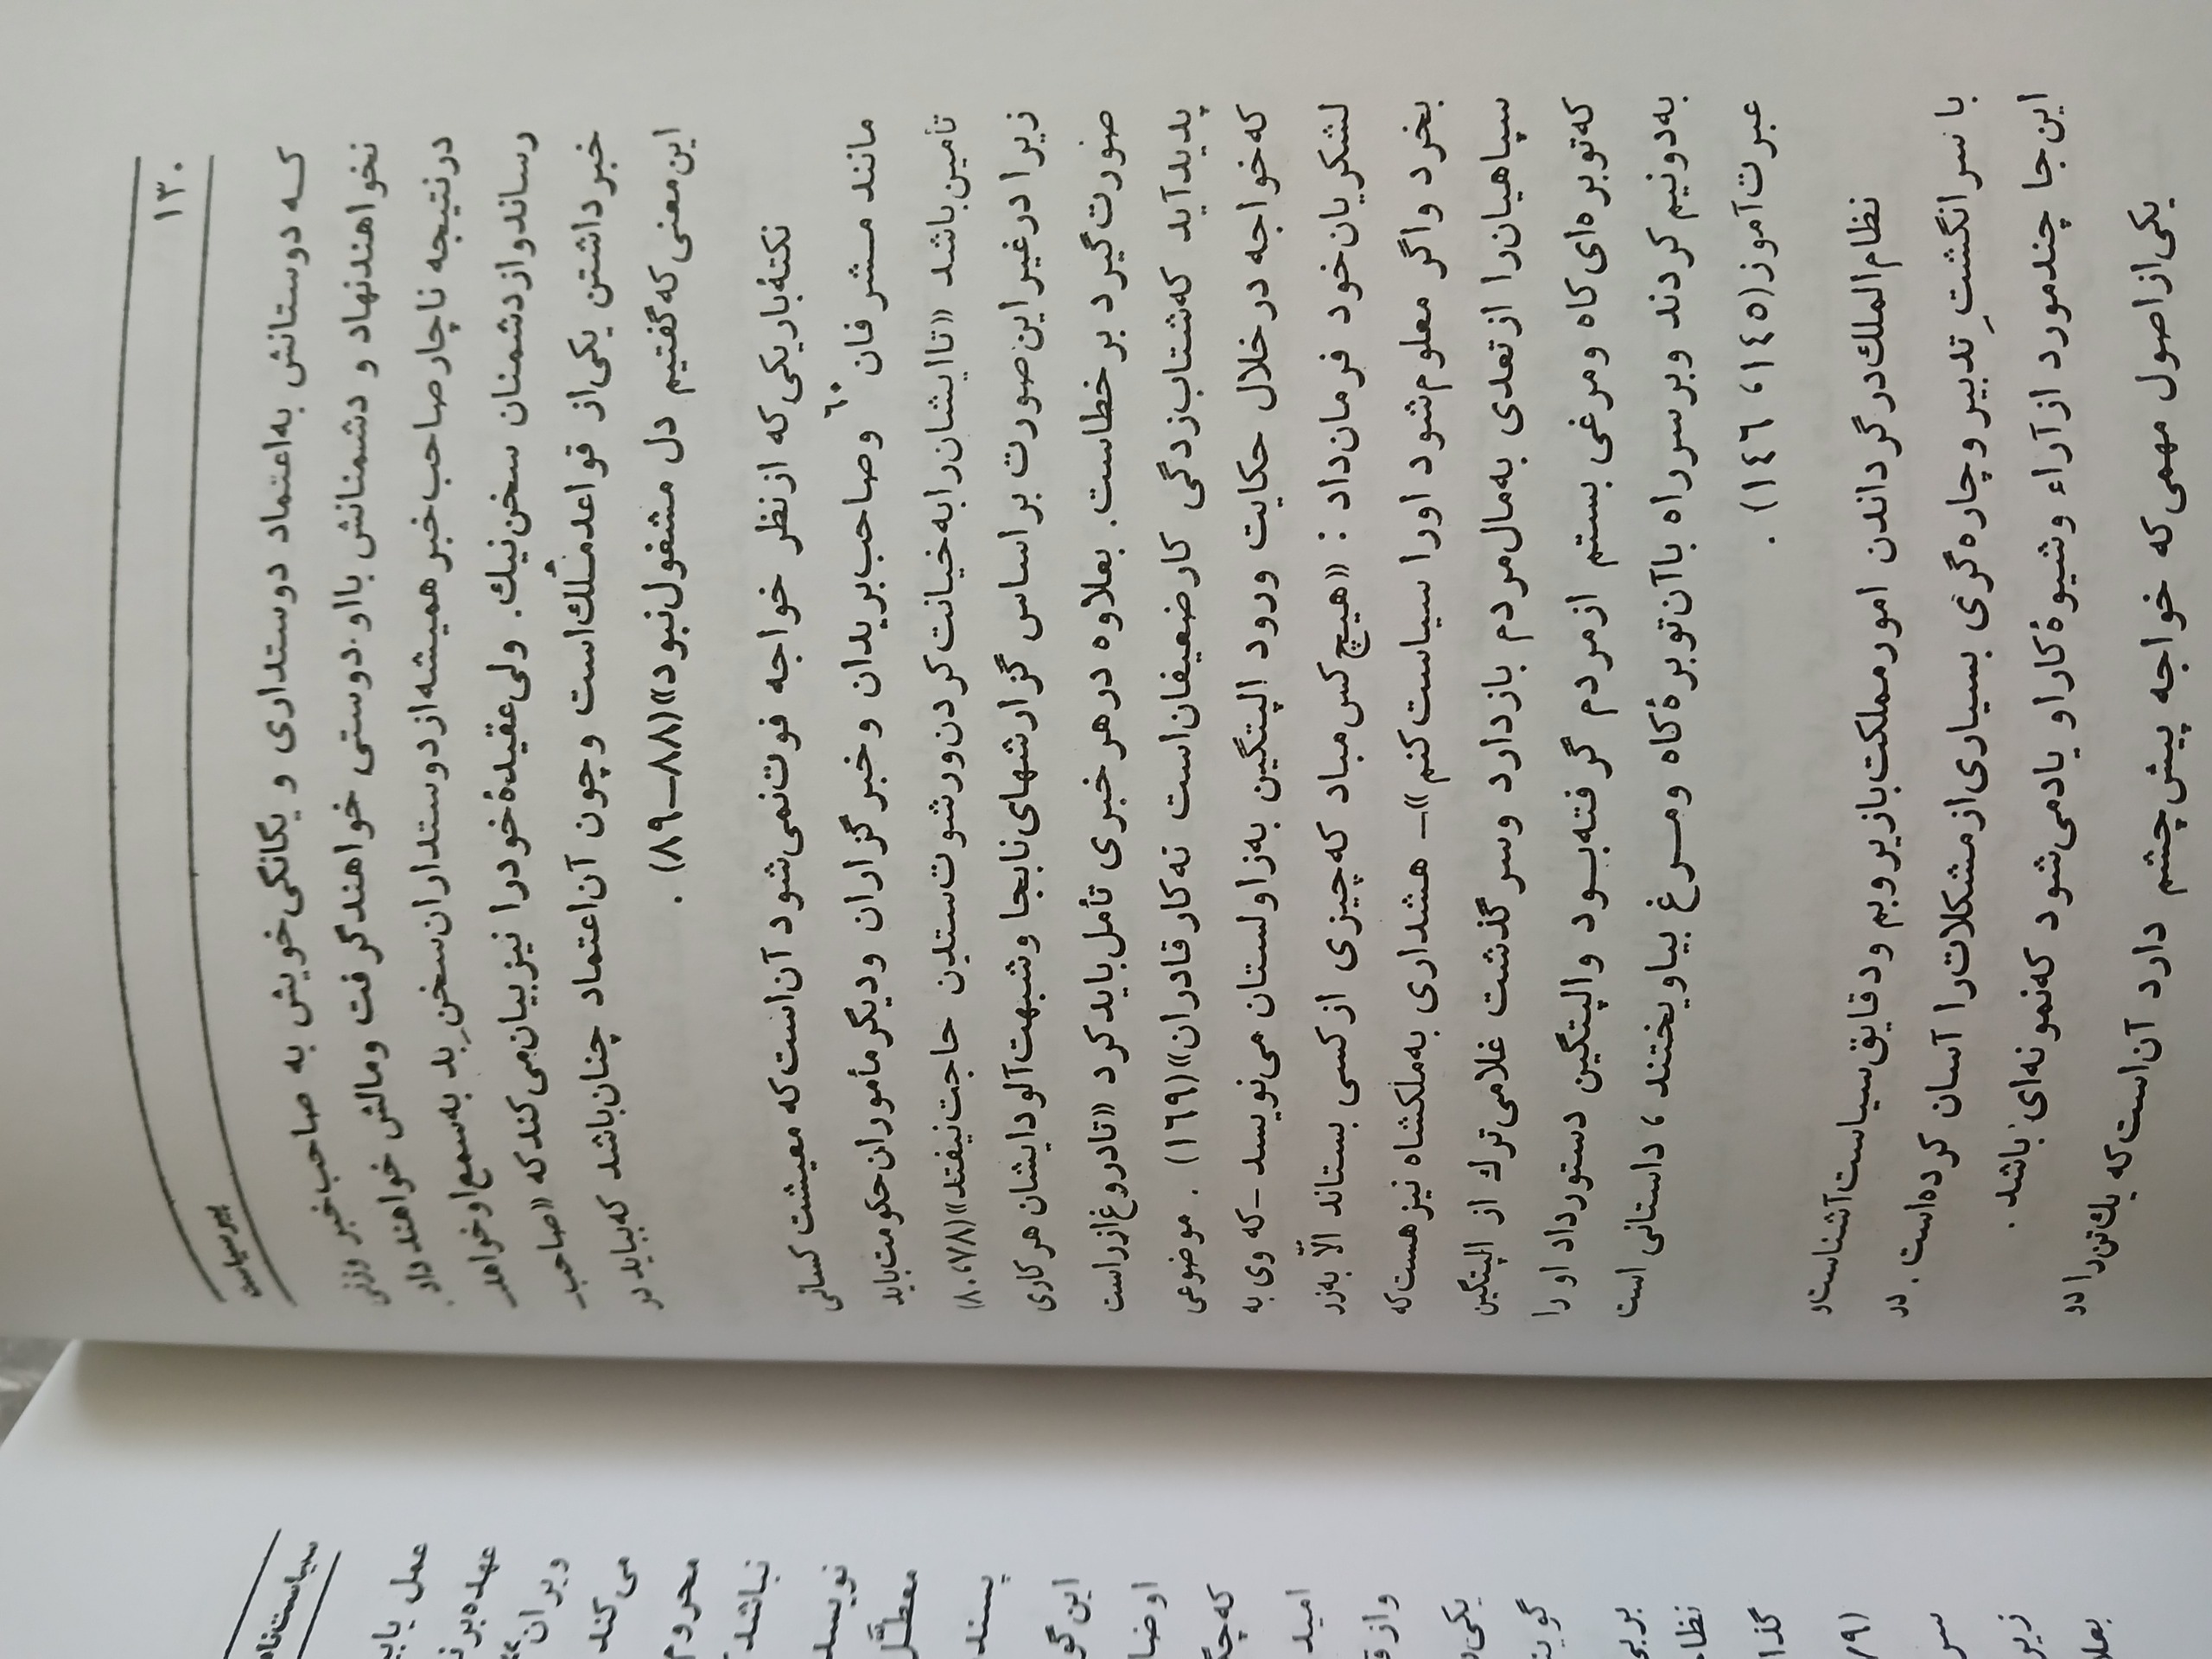 ۱۳۰
پیر سیاست
که دوستانش به‌اعتماد دوستداری و یگانگی‌خویش به صاحب‌خبر وزنی
نخواهندنهاد و دشمنانش بااو دوستی خواهندگرفت ومالش خواهندداد.
درنتیجه ناچارصاحب‌خبر همیشه‌ازدوستداران‌سخنِ‌بد به‌سمع‌اوخواهد
رساندوازدشمنان سخن‌نیك. ولی‌عقیدهٔ‌خودرا نیزبیان‌می‌کندکه «صاحب
خبرداشتن یکی‌از قواعدمُلك‌است وچون آن‌اعتماد چنان‌باشد که‌بباید در
این‌معنی‌که‌گفتیم دل مشغول‌نبود»(۸۸ــ۸۹).
نکتهٔ‌باریکی‌که ازنظر خواجه فوت‌نمی‌شود آن‌است‌که معیشت کسانی
مانند مشرفان ۶۰ وصاحب‌بریدان وخبرگزاران ودیگرمأموران‌حکومت‌باید
تأمین‌باشد «تاایشان‌رابه‌خیانت‌کردن‌ورشوت‌ستدن حاجت‌نیفتد»(۷۸،۸۰)
زیرا درغیراین‌صورت براساس گزارشهای‌نابجا وشبهت‌آلودایشان هرکاری
صورت‌گیرد برخطاست. بعلاوه درهرخبری تأمل‌بایدکرد «تادروغ‌ازراست
پدیدآید که‌شتاب‌زدگی کارضعیفان‌است نه‌کارقادران»(۱۶۹). موضوعی
که‌خواجه درخلال حکایت ورود الپتگین به‌زاولستان می‌نویسد ــ که وی به
لشکریان‌خود فرمان‌داد: «هیچ‌کس‌مباد که‌چیزی ازکسی بستاند الّا به‌زر
بخرد واگر معلوم‌شود اورا سیاست‌کنم» ــ هشداری به‌ملکشاه نیزهست‌که
سپاهیان‌را ازتعدی به‌مال‌مردم بازدارد وسرگذشت غلامی‌ترك از الپتگین
که‌توبره‌ای‌کاه ومرغی بستم ازمردم گرفته‌بود والپتگین دستورداد اورا
به‌دونیم‌کردند وبرسرراه باآن‌توبرهٔ‌کاه ومرغ بیاویختند، داستانی است
عبرت‌آموز(۱۴۵، ۱۴۶).
نظام‌الملك‌درگرداندن امورمملکت‌بازیروبم ودقایق‌سیاست‌آشناست‌و
باسرانگشتِ تدبیر وچاره‌گری بسیاری‌ازمشکلات‌را آسان کرده‌است. در
این‌جا چندمورد ازآراء وشیوهٔ‌کاراو یادمی‌شود که‌نمونه‌ای باشد.
یکی‌ازاصول مهمی‌که خواجه پیش‌چشم دارد آن‌است‌که یك‌تن‌را دو
سیاست‌نام
عمل یابد
عهده‌برن
ویران
می‌کند
محروم
نباشد
نویسد
معطّل
پسند
این‌گو
اوضا
که‌چگ
امید
وازق
یکی
گوین
بریی
نظا
گذا
(۹/
سر
زیر
بعلا